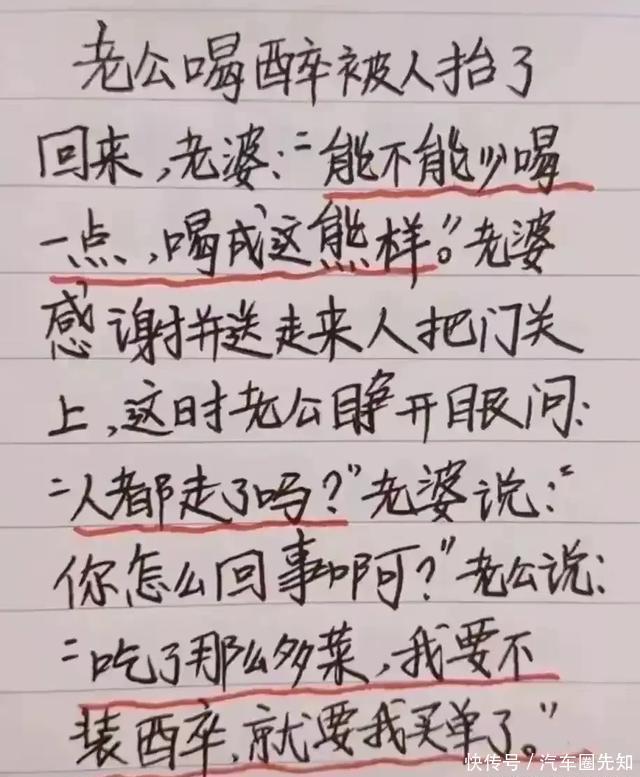 老公喝醉被人抬了
回来,老婆:"能不能少喝
一点,喝成这熊样。"老婆
感谢并送走来人把门关
上,这时老公睁开眼问:
"人都走了吗?"老婆说:"
你怎么回事啊?"老公说:
"吃了那么多菜,我要不
装醉,就要我买单了。"
快传号/汽车圈先知